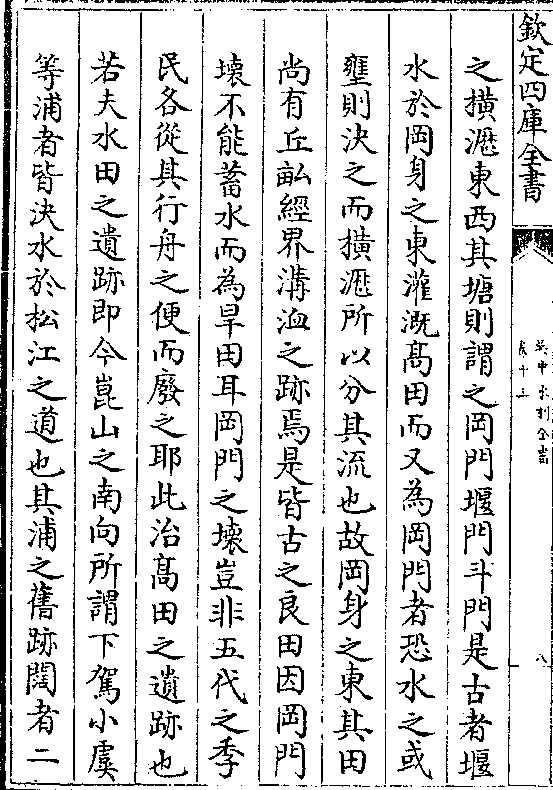 欽定四庫全書
吳中水利全書
卷十三
八
之橫瀝東西其塘則謂之岡門堰門斗門是古者堰
水於岡身之東灌溉髙田而又為岡門者恐水之或
壅則決之而橫瀝所以分其流也故岡身之東其田
尚有丘畝經界溝洫之跡焉是皆古之良田因岡門
壊不能蓄水而為旱田耳岡門之壊豈非五代之季
民各從其行舟之便而廢之耶此治髙田之遺跡也
若夫水田之遺跡即今崑山之南向所謂下駕小虞
等浦者皆決水於松江之道也其浦之舊跡闊者二